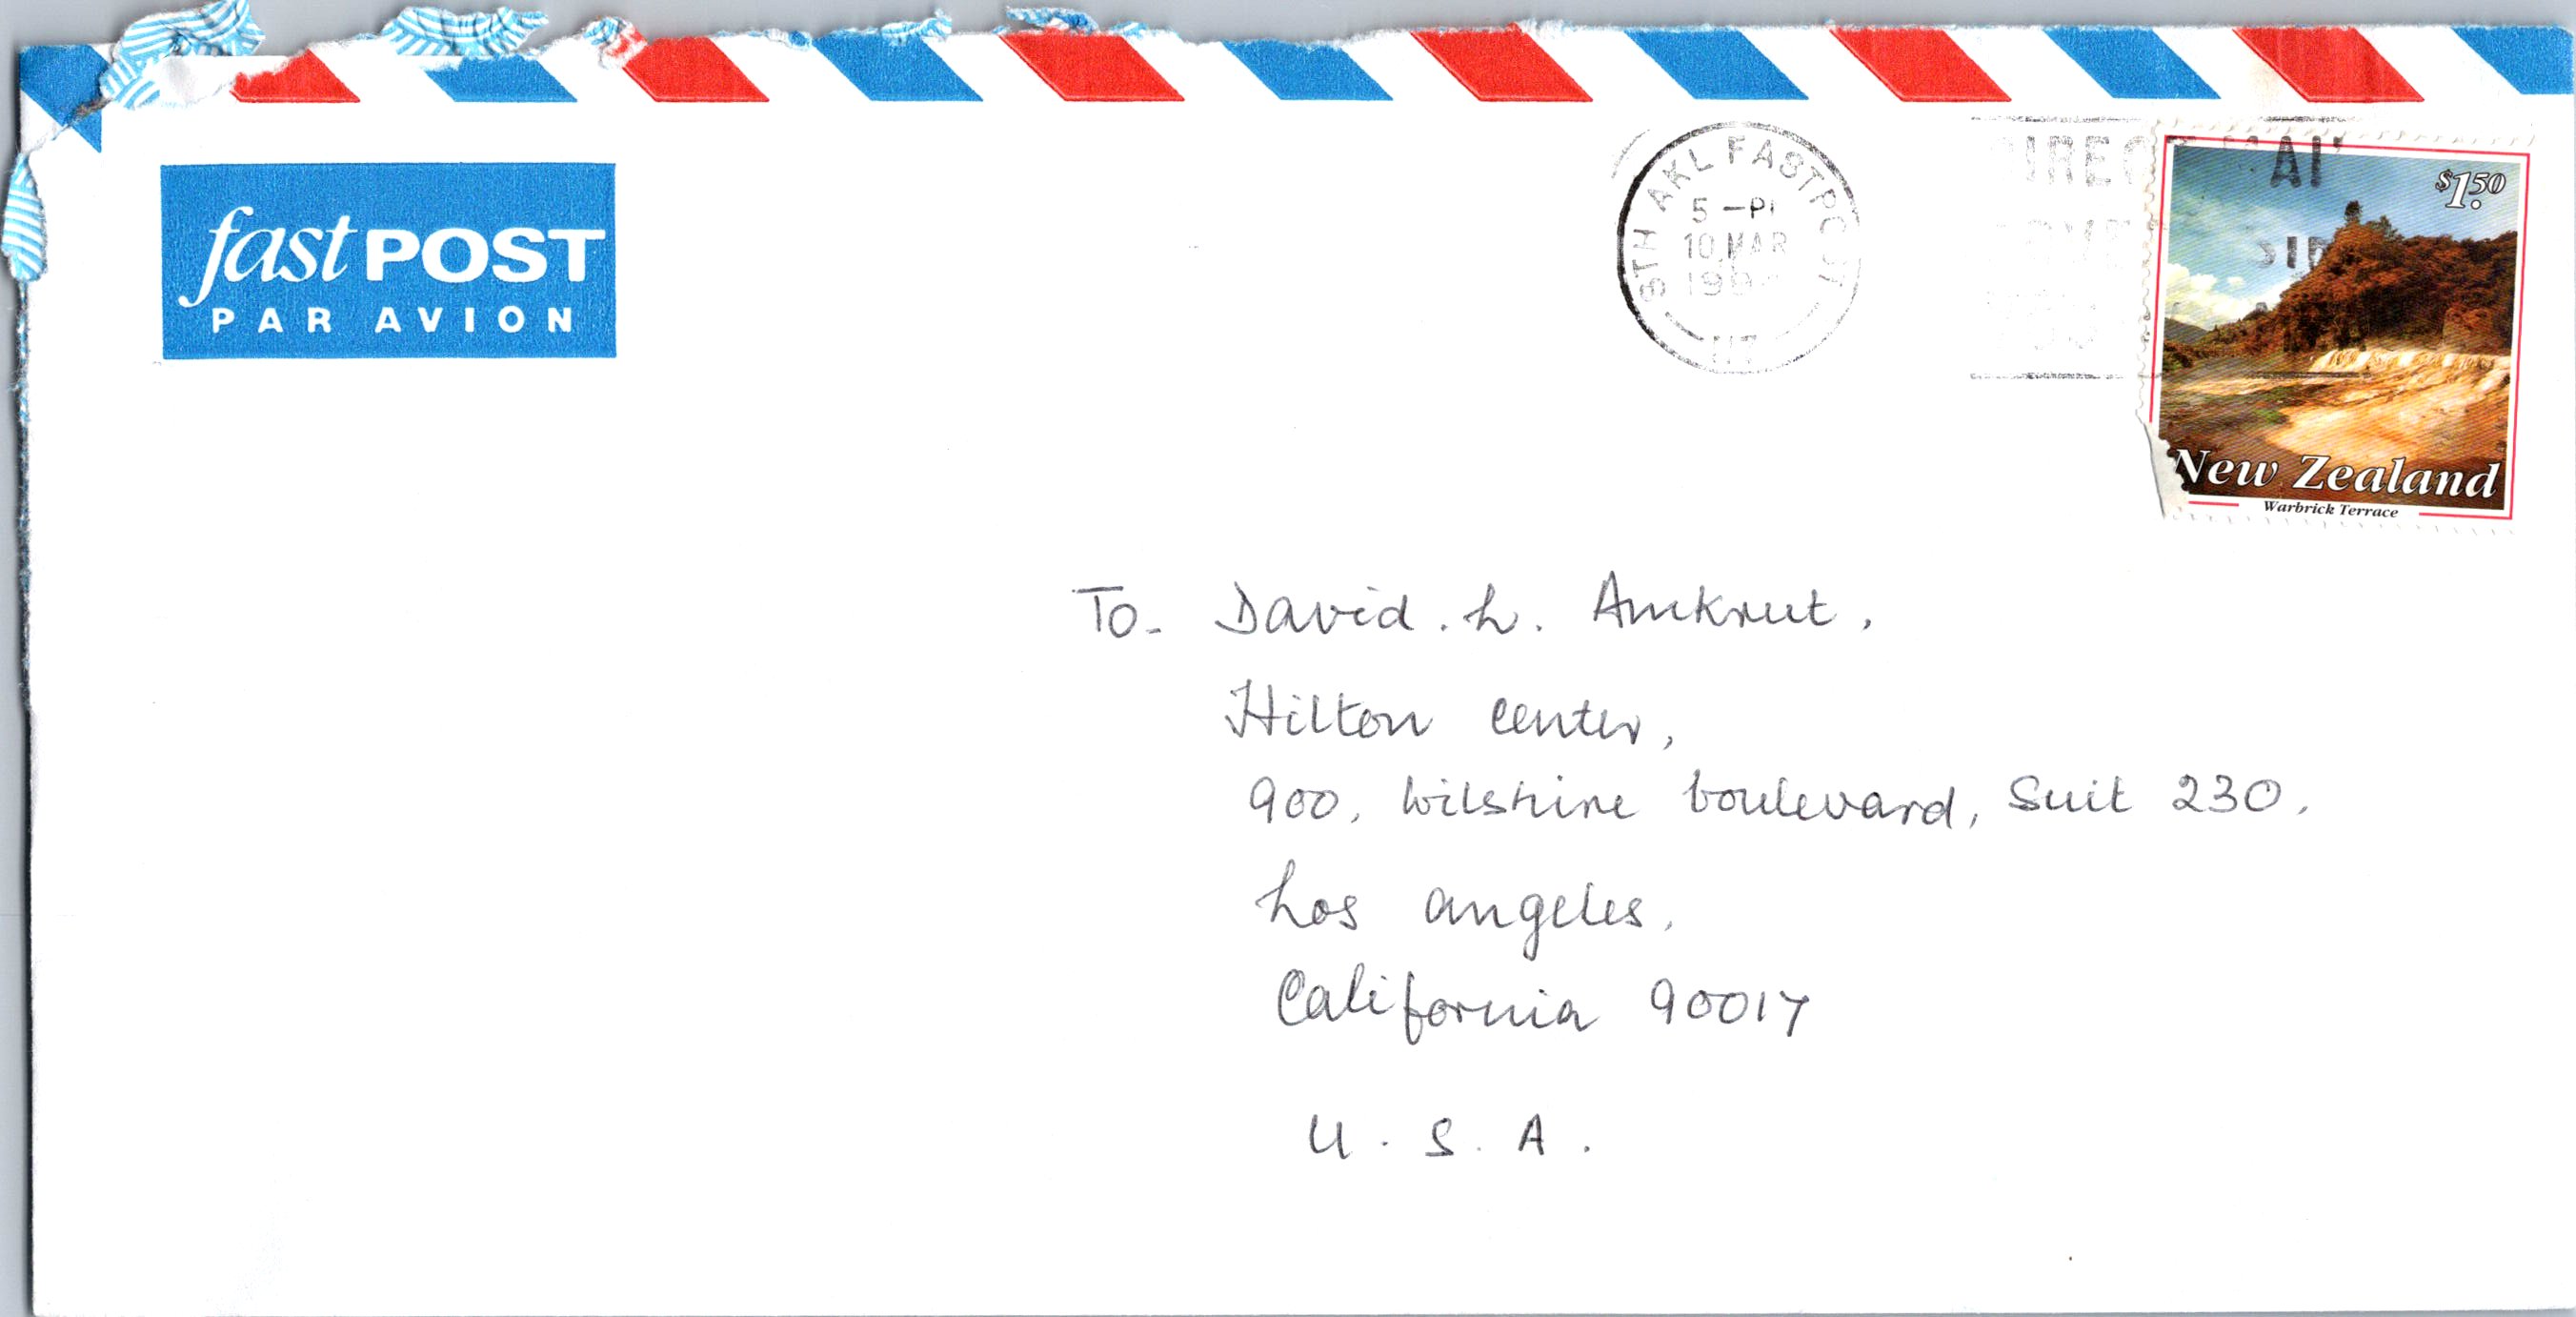 fast POST
PAR AVION
STH AKL FASTPOST
5 -P
10 MAR
199
NZ
$1.50
New Zealand
Warbrick Terrace
To- David. L. Amkrut,
Hilton center,
900, wilshire boulevard, Suit 230,
Los angeles,
California 90017
U. S. A.